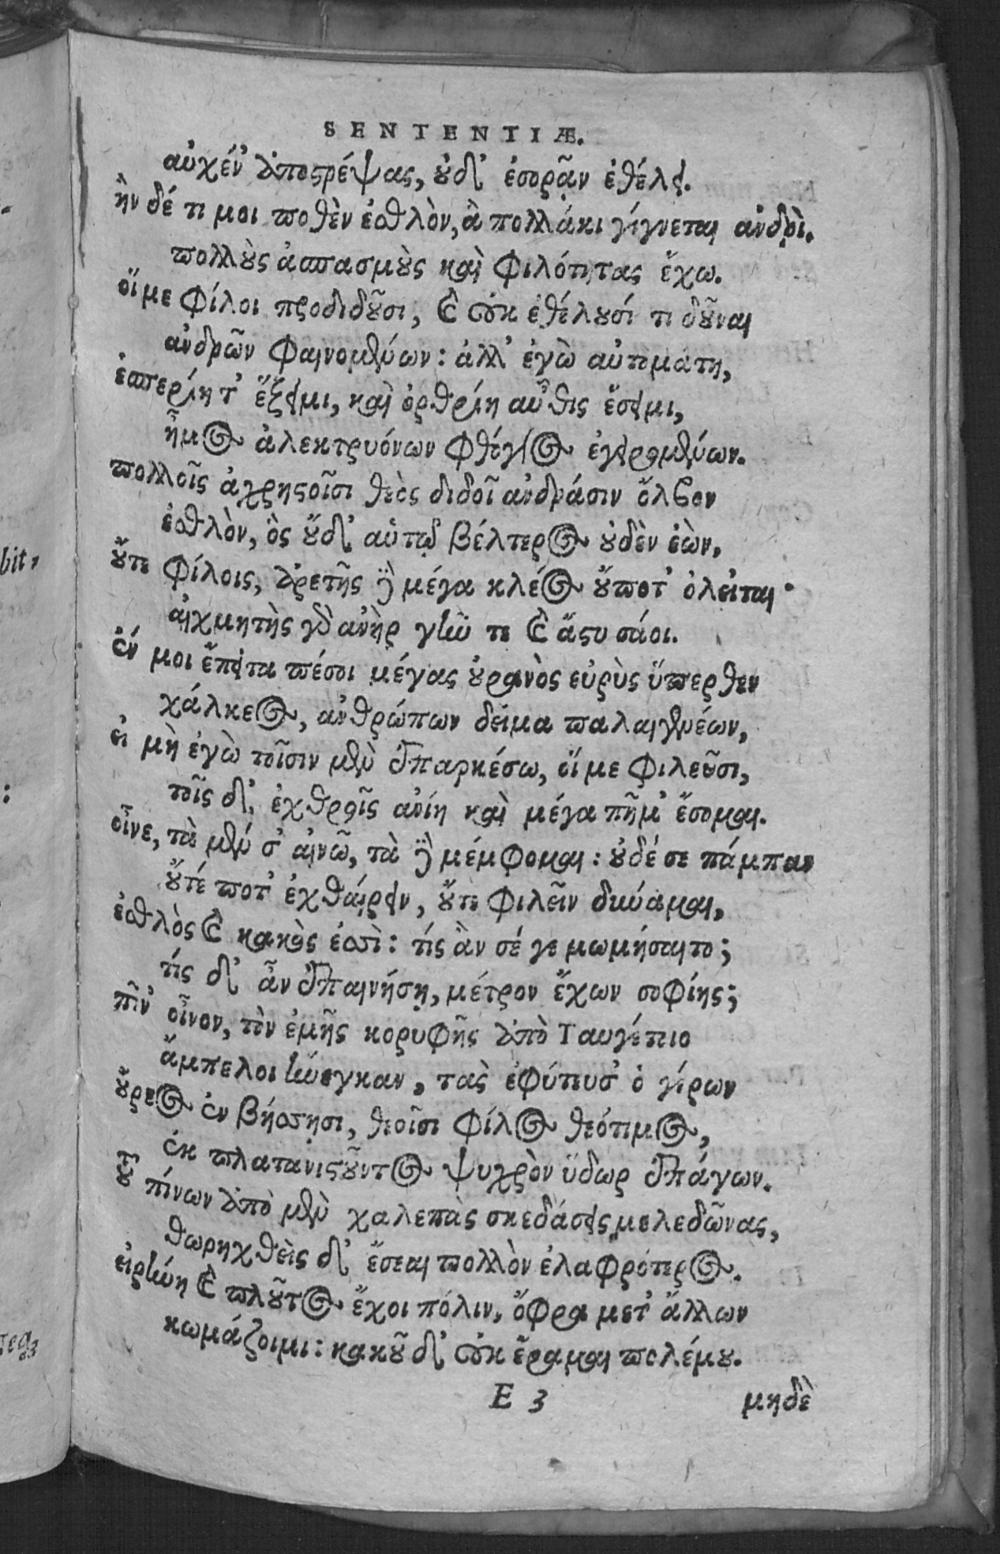 SENTENTIÆ.
αὐχέν' ἀποστρέψας, οὐδ' ἐσορᾷν ἐθέλει.
ἢν δέ τι μοι ποθὲν ἐσθλὸν, ἃ πολλάκι γίγνεται ἀνδρὶ,
πολλοὺς ἀσπασμοὺς καὶ φιλότητας ἔχω.
οἵ με φίλοι προδιδοῦσι, καὶ οὐκ ἐθέλουσί τι δοῦναι
ἀνδρῶν φαινομένων: ἀλλ' ἐγὼ αὐτομάτη,
ἑσπερίη τ' ἔξειμι, καὶ ὀρθρίη αὖθις ἔσειμι,
ἦμος ἀλεκτρυόνων φθόγγος ἐγειρομένων.
πολλοῖς ἀχρήστοισι θεὸς διδοῖ ἀνδράσιν ὄλβον
ἐσθλὸν, ὃς οὔδ' αὑτῷ βέλτερος οὐδὲν ἐὼν,
οὔτε φίλοις, ἀρετῆς δὲ μέγα κλέος οὔποτ' ὀλεῖται·
αἰχμητὴς γὰρ ἀνὴρ γῆν τε καὶ ἄστυ σάοι.
ἔν μοι ἔπειτα πέσοι μέγας οὐρανὸς εὐρὺς ὕπερθεν
χάλκεος, ἀνθρώπων δεῖμα παλαιγενέων,
εἰ μὴ ἐγὼ τοῖσιν μὲν ἐπαρκέσω, οἵ με φιλεῦσι,
τοῖς δ' ἐχθροῖς ἀνίη καὶ μέγα πῆμ' ἔσομαι.
οἶνε, τὰ μέν σ' αἰνῶ, τὰ δὲ μέμφομαι: οὐδέ σε πάμπαν
οὔτέ ποτ' ἐχθαίρειν, οὔτε φιλεῖν δύναμαι,
ἐσθλὸς καὶ κακός ἐσσι: τίς ἂν σέ γε μωμήσαιτο;
τίς δ' ἂν ἐπαινήσῃ, μέτρον ἔχων σοφίης;
πῖν' οἶνον, τὸν ἐμῆς κορυφῆς ἀπὸ Ταυγέτοιο
ἄμπελοι ἤνεγκαν, τὰς ἐφύτευσ' ὁ γέρων
οὔρεος ἐν βήσσῃσι, θεοῖσι φίλος θεότιμος,
ἐκ πλατανιστοῦντος ψυχρὸν ὕδωρ ἐπάγων.
τοῦ πίνων ἀπὸ μὲν χαλεπὰς σκεδάσεις μελεδῶνας,
θωρηχθεὶς δ' ἔσεαι πολλὸν ἐλαφρότερος.
εἰρήνη καὶ πλοῦτος ἔχοι πόλιν, ὄφρα μετ' ἄλλων
κωμάζοιμι: κακοῦ δ' οὐκ ἔραμαι πολέμου.
E 3
μηδὲ
bit,
: